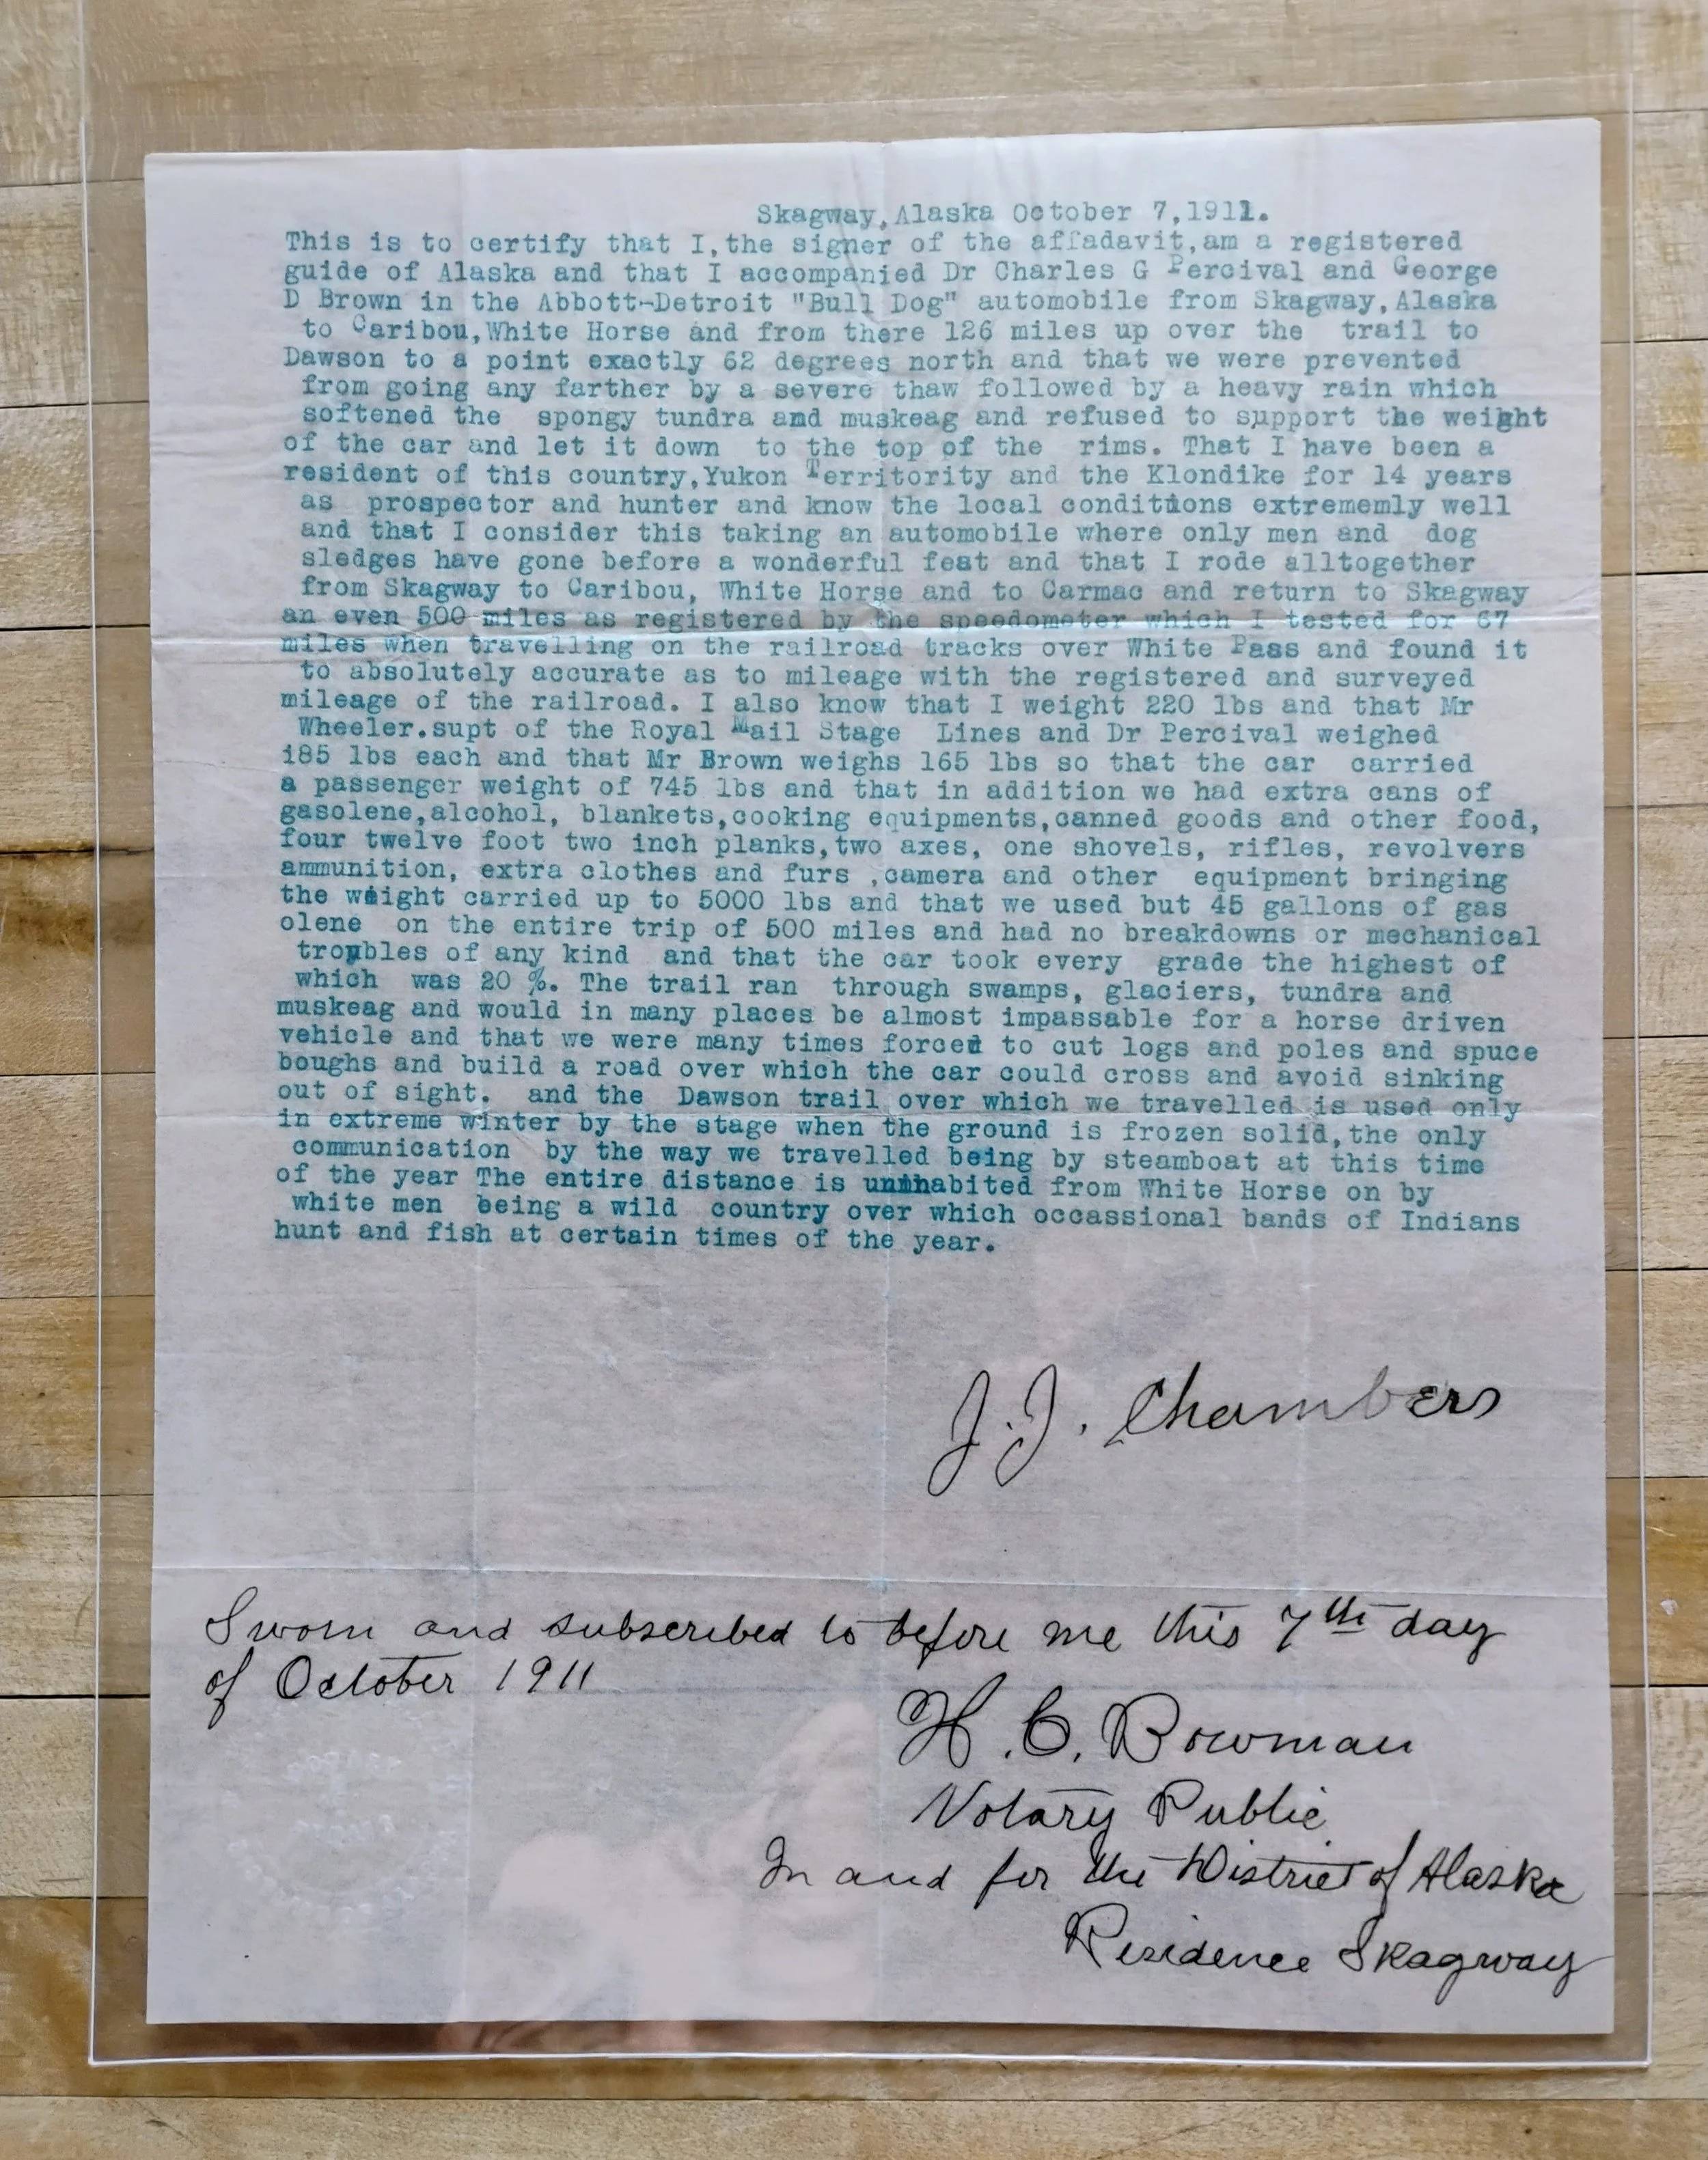 Skagway,Alaska October 7,1911.
This is to certify that I,the signer of the affadavit,am a registered
guide of Alaska and that I accompanied Dr Charles G Percival and George
D Brown in the Abbott-Detroit "Bull Dog" automobile from Skagway,Alaska
to Caribou,White Horse and from there 126 miles up over the trail to
Dawson to a point exactly 62 degrees north and that we were prevented
from going any farther by a severe thaw followed by a heavy rain which
softened the spongy tundra and muskeag and refused to support the weight
of the car and let it down to the top of the rims. That I have been a
resident of this country,Yukon Territority and the Klondike for 14 years
as prospector and hunter and know the local conditions extrememly well
and that I consider this taking an automobile where only men and dog
sledges have gone before a wonderful feat and that I rode alltogether
from Skagway to Caribou, White Horse and to Carmac and return to Skagway
an even 500 miles as registered by the speedometer which I tested for 67
miles when travelling on the railroad tracks over White Pass and found it
to absolutely accurate as to mileage with the registered and surveyed
mileage of the railroad. I also know that I weight 220 lbs and that Mr
Wheeler.supt of the Royal Mail Stage Lines and Dr Percival weighed
185 lbs each and that Mr Brown weighs 165 lbs so that the car carried
a passenger weight of 745 lbs and that in addition we had extra cans of
gasolene,alcohol, blankets,cooking equipments,canned goods and other food,
four twelve foot two inch planks,two axes, one shovels, rifles, revolvers
ammunition, extra clothes and furs ,camera and other equipment bringing
the weight carried up to 5000 lbs and that we used but 45 gallons of gas
olene on the entire trip of 500 miles and had no breakdowns or mechanical
troubles of any kind and that the car took every grade the highest of
which was 20 %. The trail ran through swamps, glaciers, tundra and
muskeag and would in many places be almost impassable for a horse driven
vehicle and that we were many times forced to cut logs and poles and spuce
boughs and build a road over which the car could cross and avoid sinking
out of sight. and the Dawson trail over which we travelled is used only
in extreme winter by the stage when the ground is frozen solid,the only
communication by the way we travelled being by steamboat at this time
of the year The entire distance is uninhabited from White Horse on by
white men being a wild country over which occassional bands of Indians
hunt and fish at certain times of the year.
J.J. Chambers
Sworn and subscribed to before me this 7th day
of October 1911
H.C. Bowman
Notary Public
In and for the District of Alaska
Residence Skagway